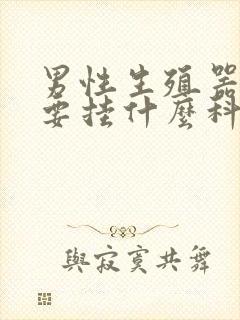 男性生殖器
要挂什麼科
與寂寞共舞